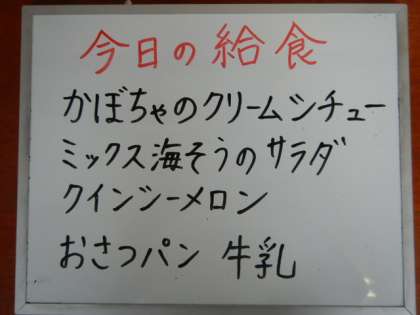 今日の給食
かぼちゃのクリームシチュー
ミックス海そうのサラダ
クインシーメロン
おさつパン 牛乳